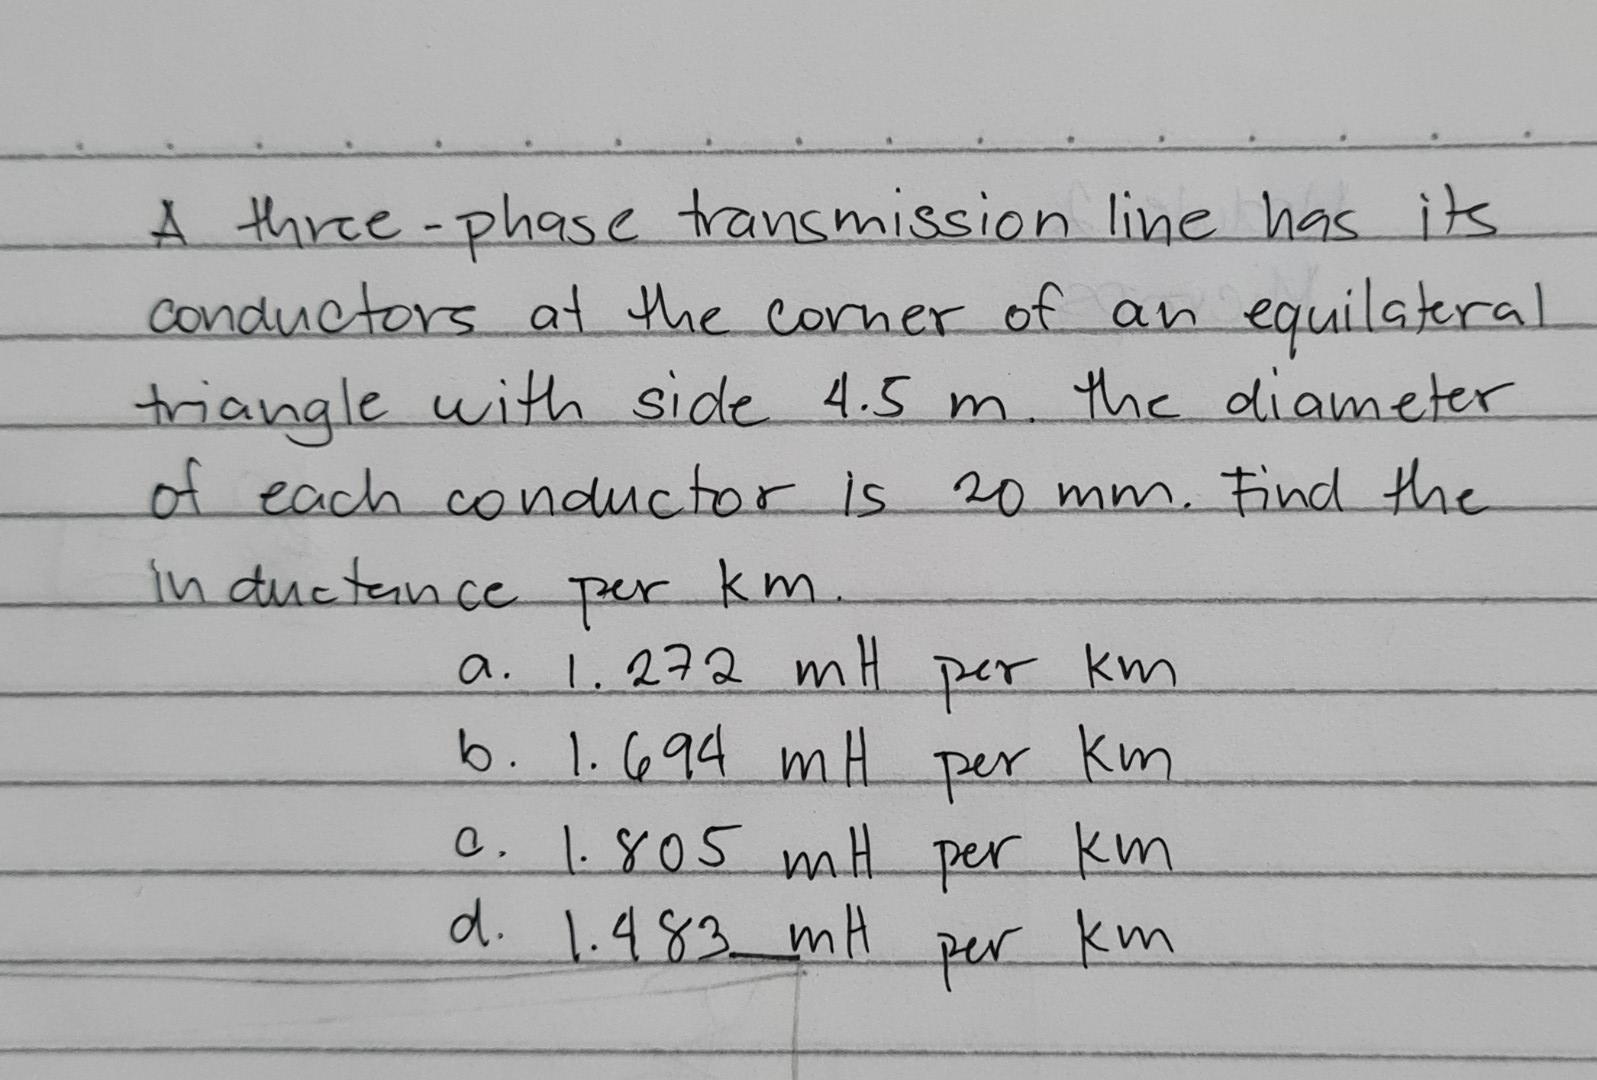 A three-phase transmission line has its
conductors at the corner of an equilateral
triangle with side 4.5 m. the diameter
of each conductor is 20 mm. Find the
inductance per km.
a. 1.272 mH per km
b. 1.694 mH per km
c. 1.805 mH per km
d. 1.483 mH per km